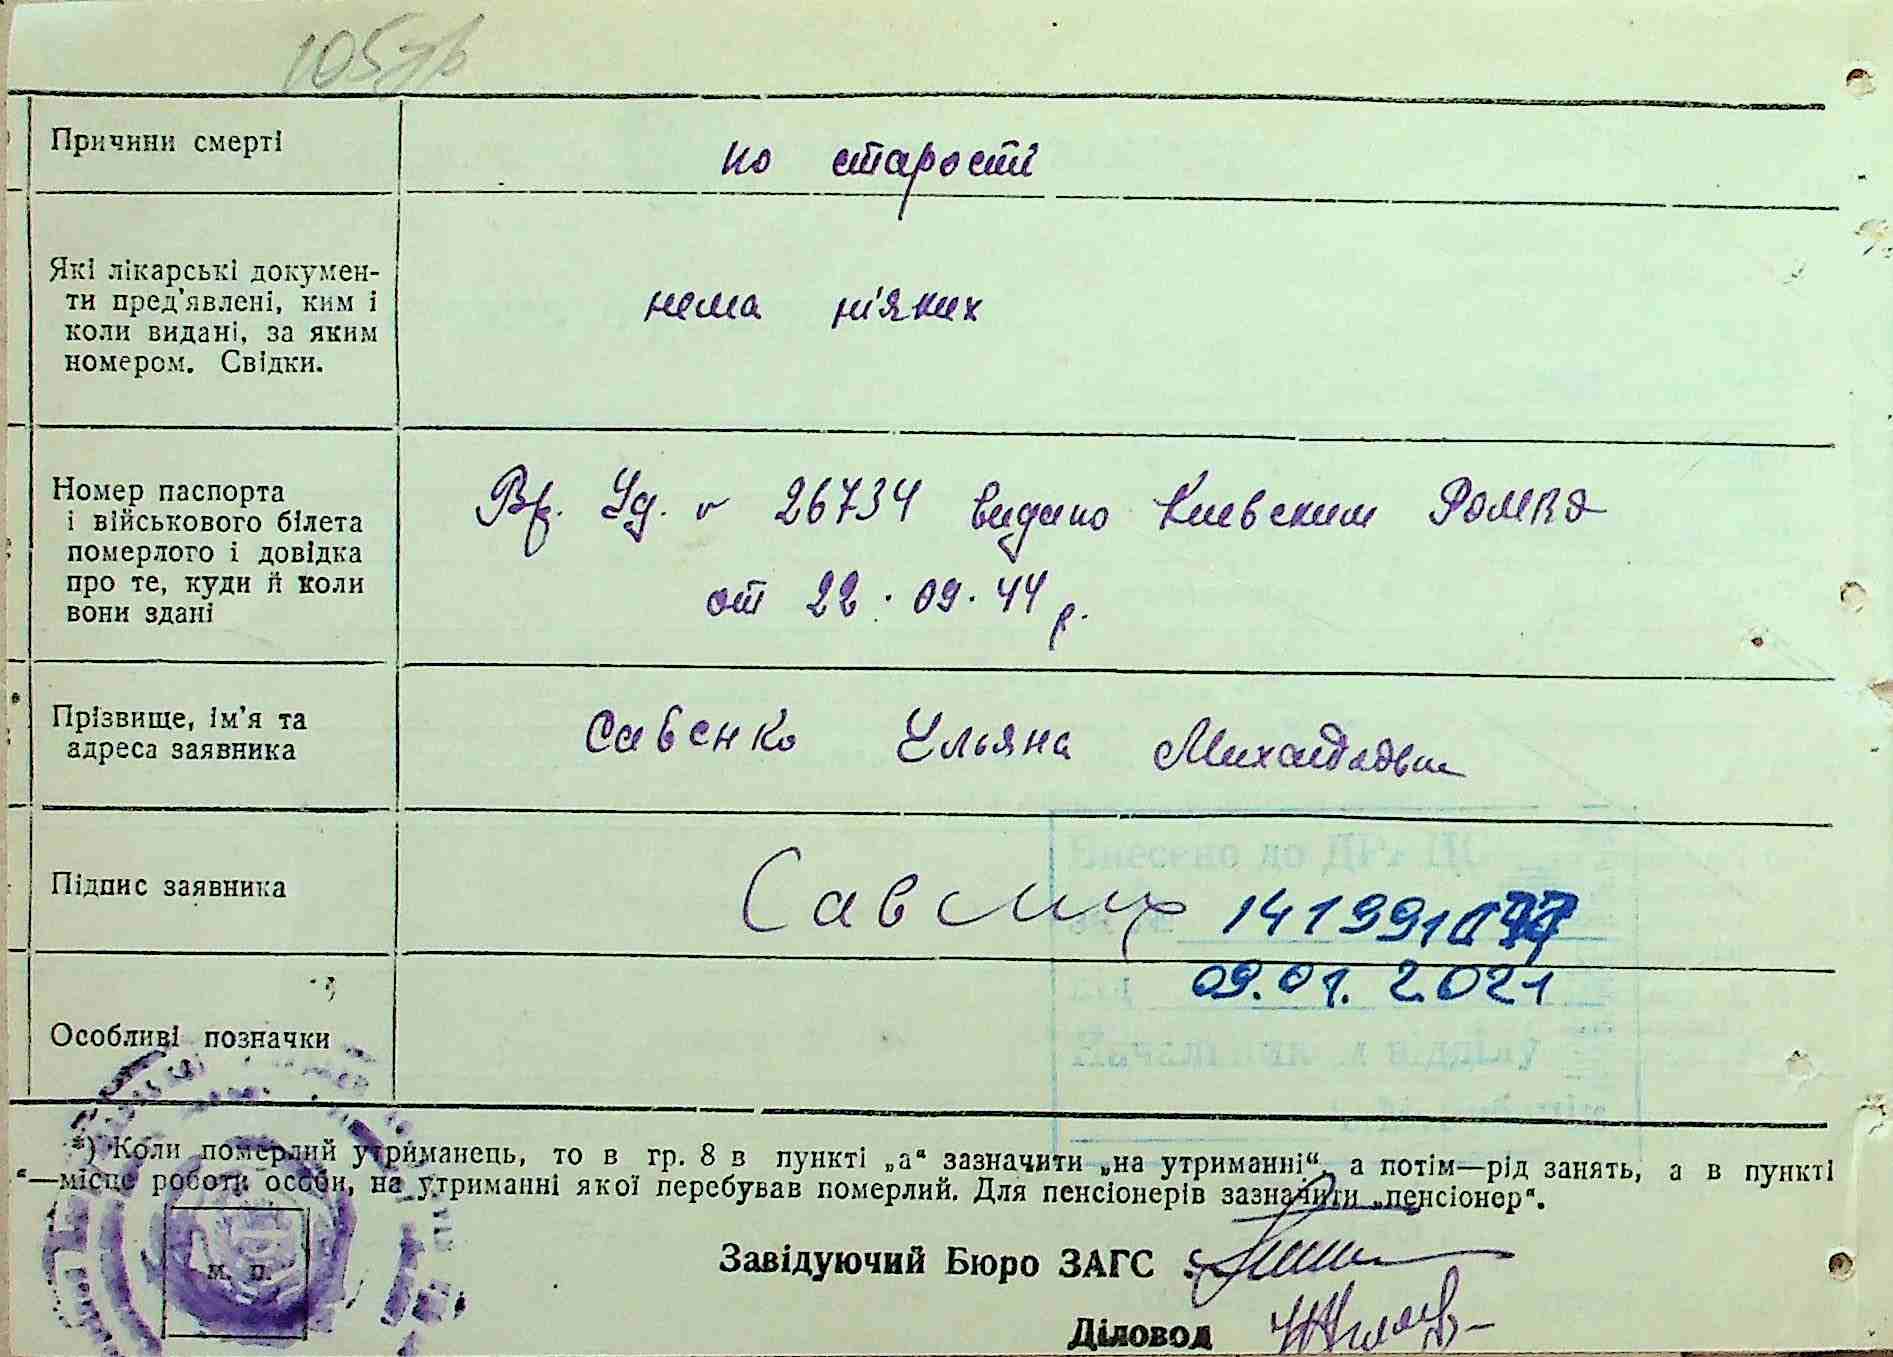 105
Причини смерті
по старості
Які лікарські докумен-
ти пред'явлені, ким і
коли видані, за яким
номером. Свідки.
нема ніяких
Номер паспорта
і військового білета
померлого і довідка
про те, куди й коли
вони здані
Вр. Уд. 26734 видано Киевским
от 22.09.44 р.
Прізвище, ім'я та
адреса заявника
Савенко Ульяна
Підпис заявника
09.01.2021
Внесено до
Особливі позначки
відділу
*) Коли померлий утриманець, то в гр. 8 в пункті „а“ зазначити „на утриманні“, а потім—рід занять, а в пункті
“—місце роботи особи, на утриманні якої перебував померлий. Для пенсіонерів зазначити „пенсіонер“.
М. П.
Завідуючий Бюро ЗАГС
Діловод